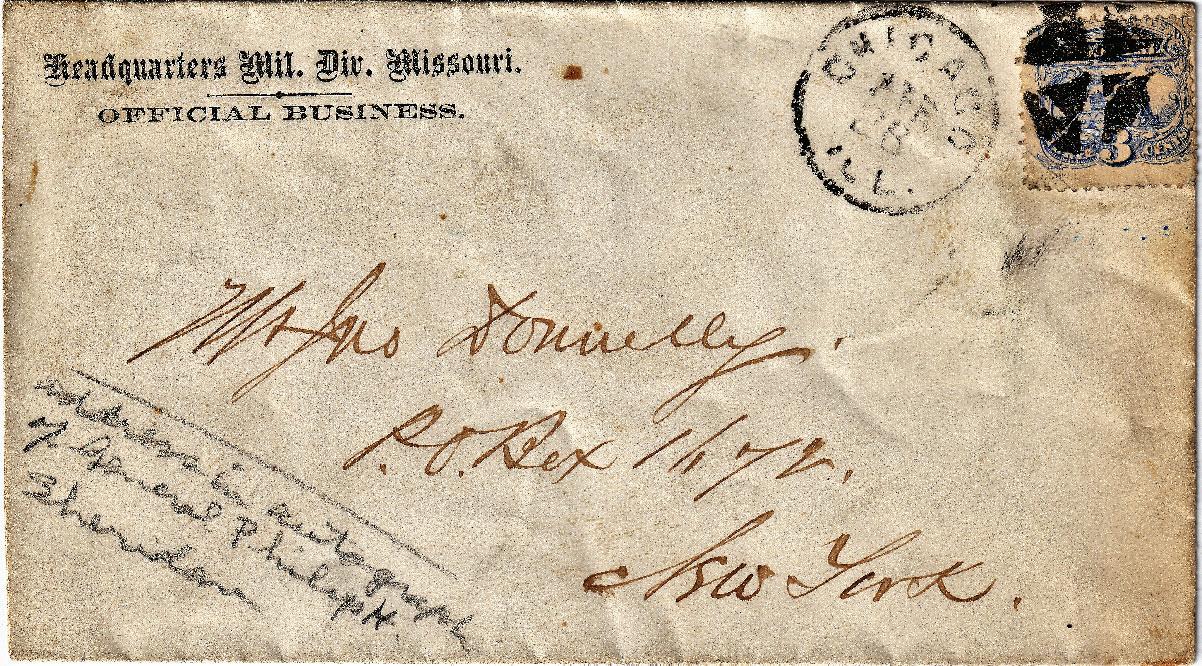 Headquarters Mil. Div. Missouri.
OFFICIAL BUSINESS.
CHICAGO
APR
ILL.
3
Mr Jno Donnelly.
P.O. Box 1672.
New York.
address in autograph
of General Philip H.
Sheridan